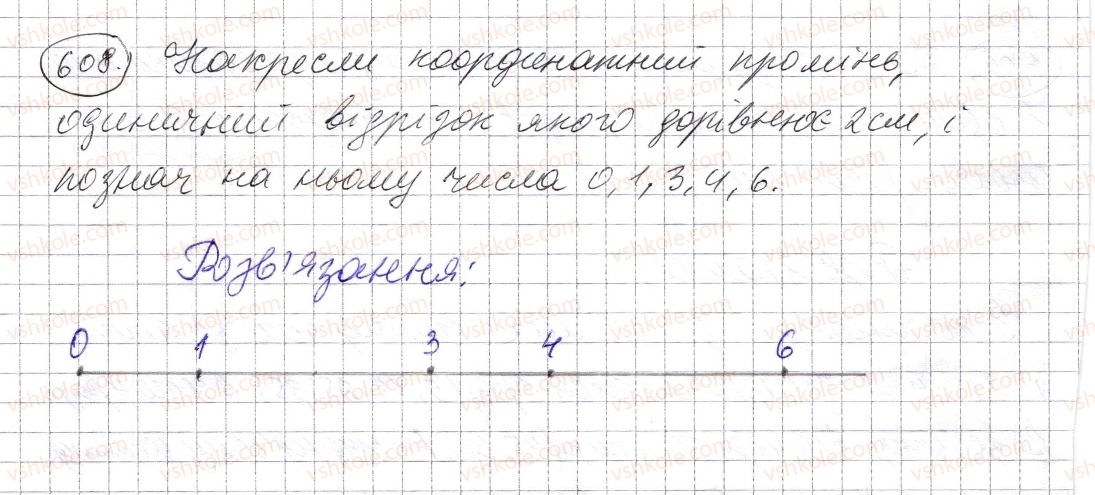 608. Накресли координатний промінь,
одиничний відрізок якого дорівнює 2см, і
познач на ньому числа 0, 1, 3, 4, 6.
Розв'язання:
0 1 3 4 6